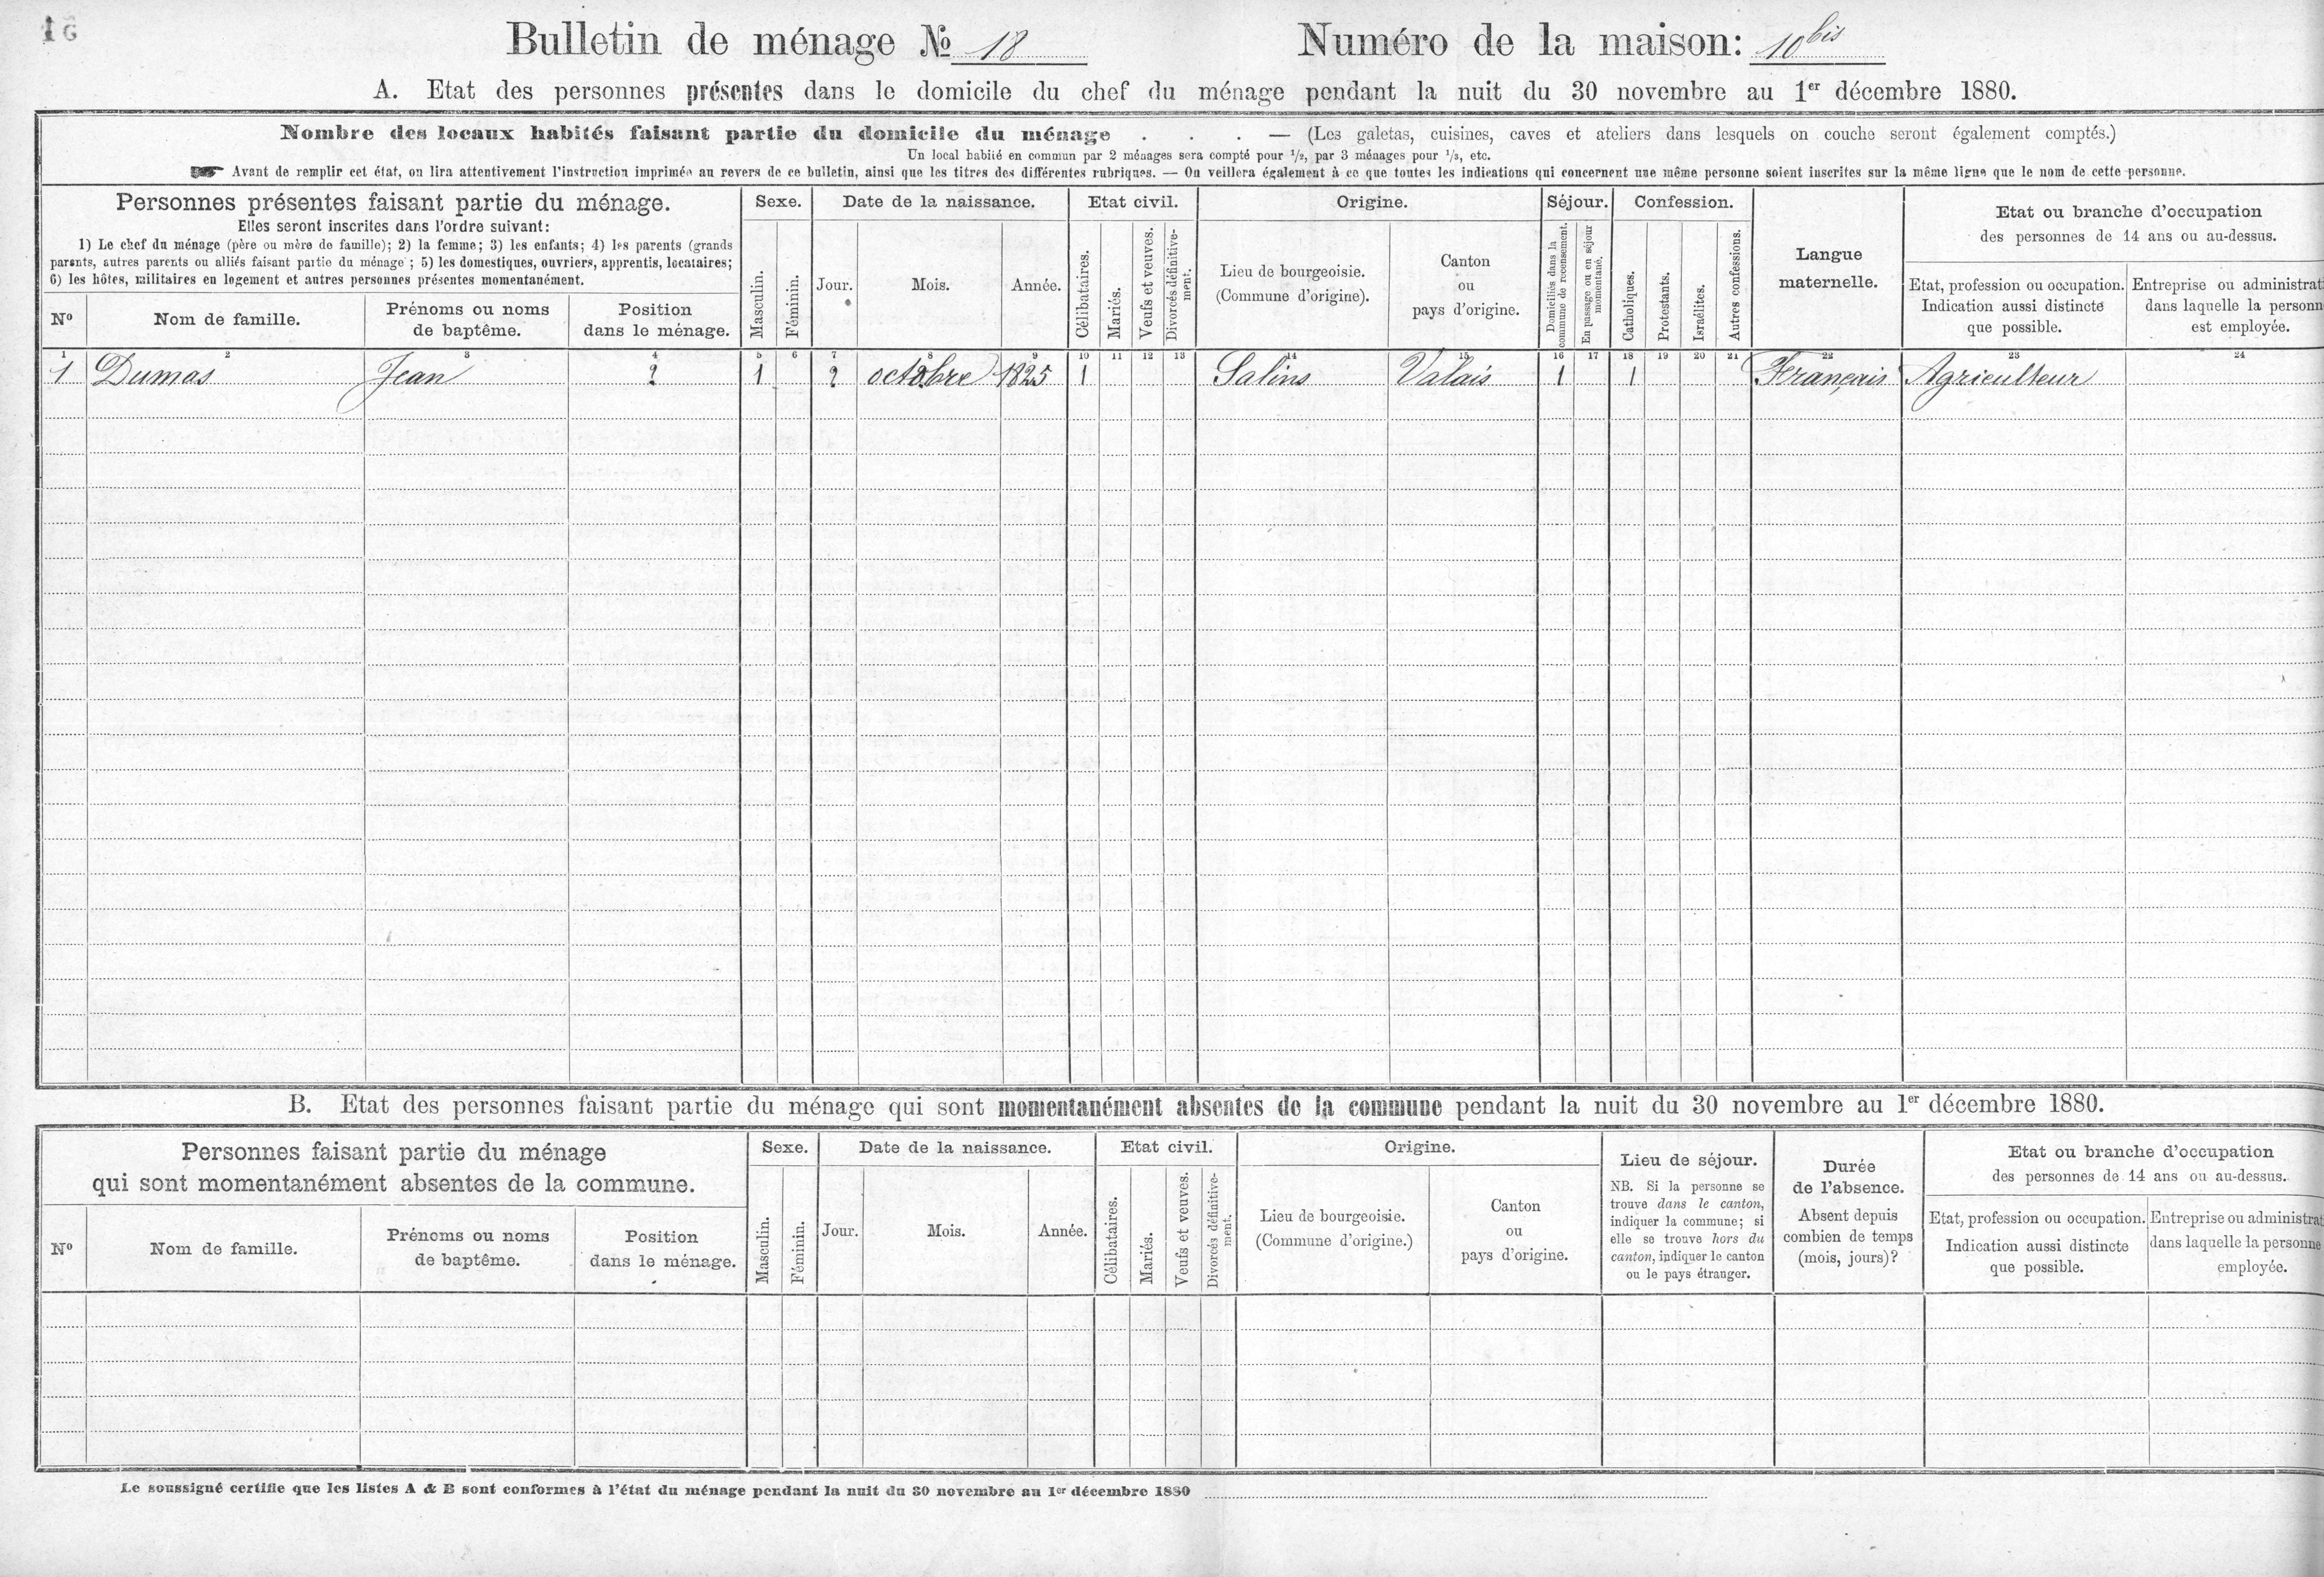 16
Bulletin de ménage № 18 Numéro de la maison: 10 bis
A. Etat des personnes présentes dans le domicile du chef du ménage pendant la nuit du 30 novembre au 1er décembre 1880.
Nombre des locaux habités faisant partie du domicile du ménage . . . — (Les galetas, cuisines, caves et ateliers dans lesquels on couche seront également comptés.)
Un local habité en commun par 2 ménages sera compté pour 1/2, par 3 ménages pour 1/3, etc.
Avant de remplir cet état, on lira attentivement l'instruction imprimée au revers de ce bulletin, ainsi que les titres des différentes rubriques. — On veillera également à ce que toutes les indications qui concernent une même personne soient inscrites sur la même ligne que le nom de cette personne.
Personnes présentes faisant partie du ménage.
Elles seront inscrites dans l'ordre suivant:
1) Le chef du ménage (père ou mère de famille); 2) la femme; 3) les enfants; 4) les parents (grands
parents, autres parents ou alliés faisant partie du ménage; 5) les domestiques, ouvriers, apprentis, locataires;
6) les hôtes, militaires en logement et autres personnes présentes momentanément.
No
Nom de famille.
Prénoms ou noms
de baptême.
Position
dans le ménage.
Sexe.
Masculin.
Féminin.
Date de la naissance.
Jour.
Mois.
Année.
Etat civil.
Célibataires.
Mariés.
Veufs et veuves.
Divorcés définitive-
ment.
Origine.
Lieu de bourgeoisie.
(Commune d'origine).
Canton
ou
pays d'origine.
Séjour.
Domiciliés dans la
commune de recensement.
En passage ou en séjour
momentané.
Confession.
Catholiques.
Protestants.
Israélites.
Autres confessions.
Langue
maternelle.
Etat ou branche d'occupation
des personnes de 14 ans ou au-dessus.
Etat, profession ou occupation.
Indication aussi distincte
que possible.
Entreprise ou administrat
dans laquelle la personn
est employée.
1 2 3 4 5 6 7 8 9 10 11 12 13 14 15 16 17 18 19 20 21 22 23 24
1 Dumas Jean ? 1 2 octobre 1825 1 Salins Valais 1 1 Français Agriculteur
B. Etat des personnes faisant partie du ménage qui sont momentanément absentes de la commune pendant la nuit du 30 novembre au 1er décembre 1880.
Personnes faisant partie du ménage
qui sont momentanément absentes de la commune.
No
Nom de famille.
Prénoms ou noms
de baptême.
Position
dans le ménage.
Sexe.
Masculin.
Féminin.
Date de la naissance.
Jour.
Mois.
Année.
Etat civil.
Célibataires.
Mariés.
Veufs et veuves.
Divorcés définitive-
ment.
Origine.
Lieu de bourgeoisie.
(Commune d'origine.)
Canton
ou
pays d'origine.
Lieu de séjour.
NB. Si la personne se
trouve dans le canton,
indiquer la commune; si
elle se trouve hors du
canton, indiquer le canton
ou le pays étranger.
Durée
de l'absence.
Absent depuis
combien de temps
(mois, jours)?
Etat ou branche d'occupation
des personnes de 14 ans ou au-dessus.
Etat, profession ou occupation.
Indication aussi distincte
que possible.
Entreprise ou administrat
dans laquelle la personne
employée.
Le soussigné certifie que les listes A & B sont conformes à l'état du ménage pendant la nuit du 30 novembre au 1er décembre 1880